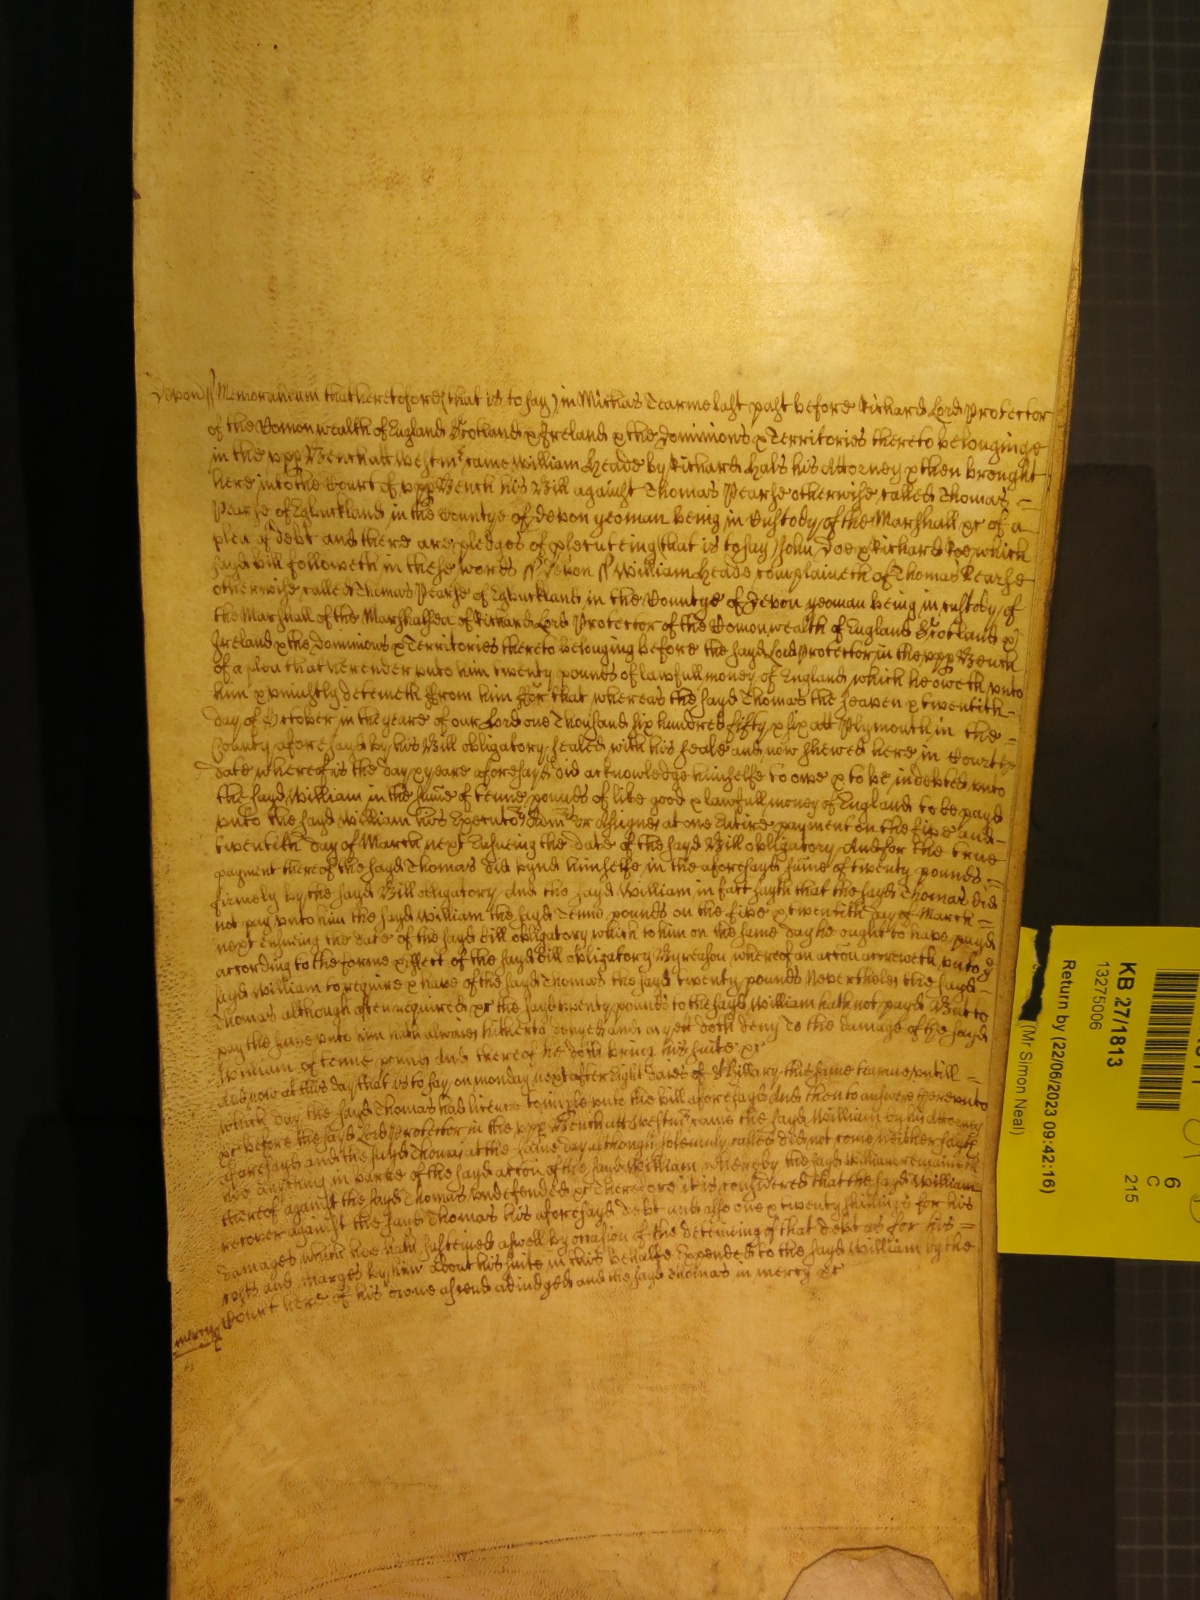 Devon ss Memorandum that heretofore (that is to say) in Michas Tearme last past before Richard Lord Protector
of the Comonwealth of England Scotland & Ireland & the Dominions & Territories thereto belonginge
in the upp Bench att Westmr came William Heade by Richard Hals his Attorney & then brought
here into the Court of upp Bench his Bill against Thomas Pearse otherwise called Thomas =
Pearse of Egbuckland in the Countye of Devon yeoman being in Custody of the Marshall &c of a
plea of Debt and there are pledges of prosecuting (that is to say) John Doe & Richard Roe which
sayd bill followeth in these words ss Devon ss William Heade complaineth of Thomas Pearse
otherwise called Thomas Pearse of Egbuckland in the Countye of Devon yeoman being in custody of
the Marshall of the Marshalsea of Richard Lord Protector of the Comonwealth of England Scotland &
Ireland & the Dominions & Territories thereto belonging before the sayd Lord Protector in the upp Bench
of a plea that he render unto him twenty pounds of lawfull money of England which he oweth unto
him & uniustly deteineth from him For that whereas the sayd Thomas the seaven & twentith -
day of October in the yeare of our Lord one Thousand six hundred fifty & six att Plymouth in the =
County aforesayd by his Bill obligatory sealed with his seale and now shewed here in Courte
date whereof is the day & yeare aforesayd did acknowledge himselfe to owe & to be indebted unto
the sayd William in the sume of tenne pounds of like good & lawfull money of England to be payd
unto the sayd William his Executors Admrs or Assignes at one entire payment on the five and -
twentith day of March next ensueing the date of the sayd Bill obligatory And for the true
payment thereof the sayd Thomas did bynd himselfe in the aforesayd sume of twenty pounds =
firmely by the sayd Bill obligatory And the sayd William in fact sayth that the sayd Thomas did
not pay unto him the sayd William the sayd Tenne pounds on the five & twentith day of March =
next ensueing the date of the sayd bill obligatory which to him on the same day he ought to have payd
according to the forme & effect of the sayd bill obligatory By reason whereof an action accreweth unto ye
sayd William to require & have of the sayd Thomas the sayd twenty pounds Neverthelesse the sayd -
Thomas although often required &c the sayd twenty pounds to the sayd William hath not payd But to
pay the same unto him hath alwaies hitherto denyed and as yett doth deny To the damage of the sayd
William of tenne pounds And thereof he doth bring his suite &c
And now at this day that is to say on monday next after Eight daies of St Hillary this same tearme untill =
which day the sayd Thomas had licence to imple unto the bill aforesayd And then to answere thereunto
&c before the sayd Lord Protector in the upp Bench att Westmr came the sayd William by his attorney
aforesayd and the sayd Thomas at the same day although solemnly called did not come neither sayth
hee anything in barre of the sayd action of the sayd William whereby the sayd William remaineth
thereof against the sayd Thomas undefended &c Therefore it is considered that the sayd William
recover against the sayd Thomas his aforesayd debt and also one & twenty shillings for his
damages which hee hath susteined aswell by occasion of the deteineing of that debt as for his =
costs and charges by him about his suite in this behalfe expended to the sayd William by the
mercy Court here of his owne assent adiudged and the sayd Thomas in mercy &c
KB 27/1813
13275006
Return by (22/06/2023 09:42:16)
(Mr Simon Neal)
6
C
215